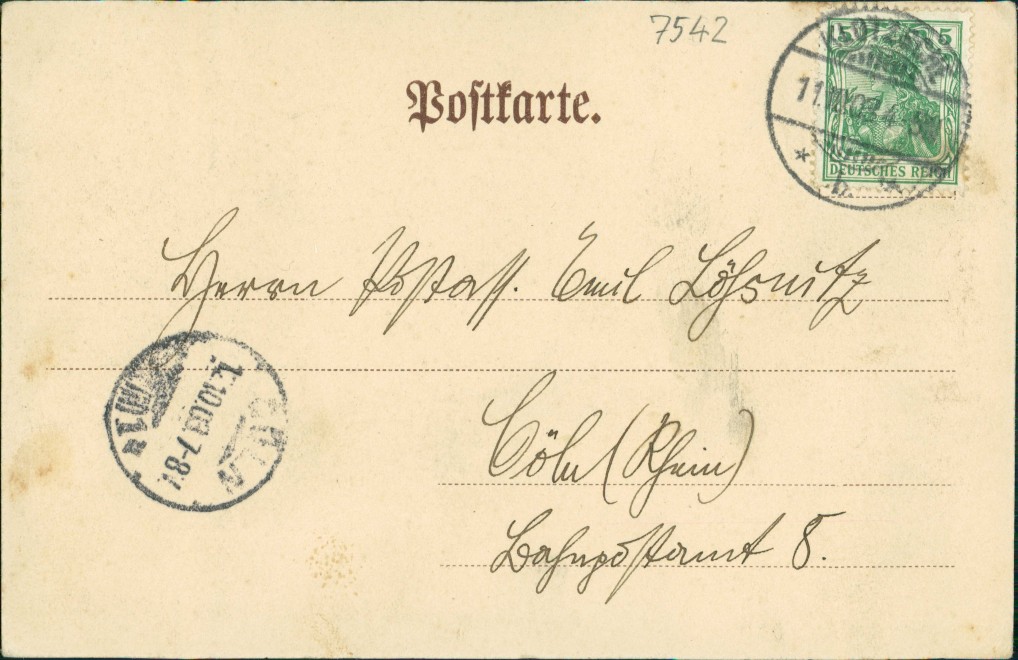 7542
Postkarte.
5 5
DEUTSCHES REICH
b.
Herrn Postass. Emil Lößnitz
Cöln (Rhein)
Bahnpostamt 8.
CÖLN
10.03. 7-8V.